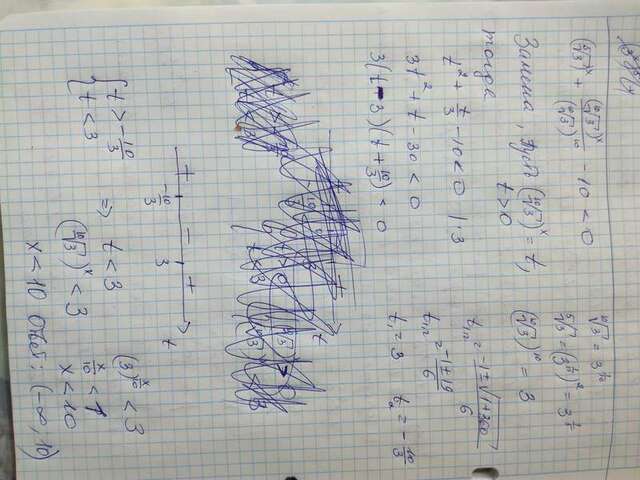 (⁵√3)ˣ + (¹⁰√3)ˣ/(¹⁰√3)¹⁰ - 10 < 0
Замена, пусть (¹⁰√3)ˣ = t,
t > 0
тогда
t² + t/3 - 10 < 0 | ·3
3t² + t - 30 < 0
3(t - 3)(t + 10/3) < 0
¹⁰√3 = 3^(1/10)
⁵√3 = (3^(1/10))² = 3^(1/5)
(¹⁰√3)¹⁰ = 3
t₁,₂ = (-1 ± √(1 + 360))/6
t₁,₂ = (-1 ± 19)/6
t₁ = 3 t₂ = -10/3
+ - +
-10/3 3 t
{ t > -10/3
t < 3
⇒ t < 3
(¹⁰√3)ˣ < 3
(3)^(x/10) < 3
x/10 < 1
x < 10
x < 10 Ответ: (-∞, 10)